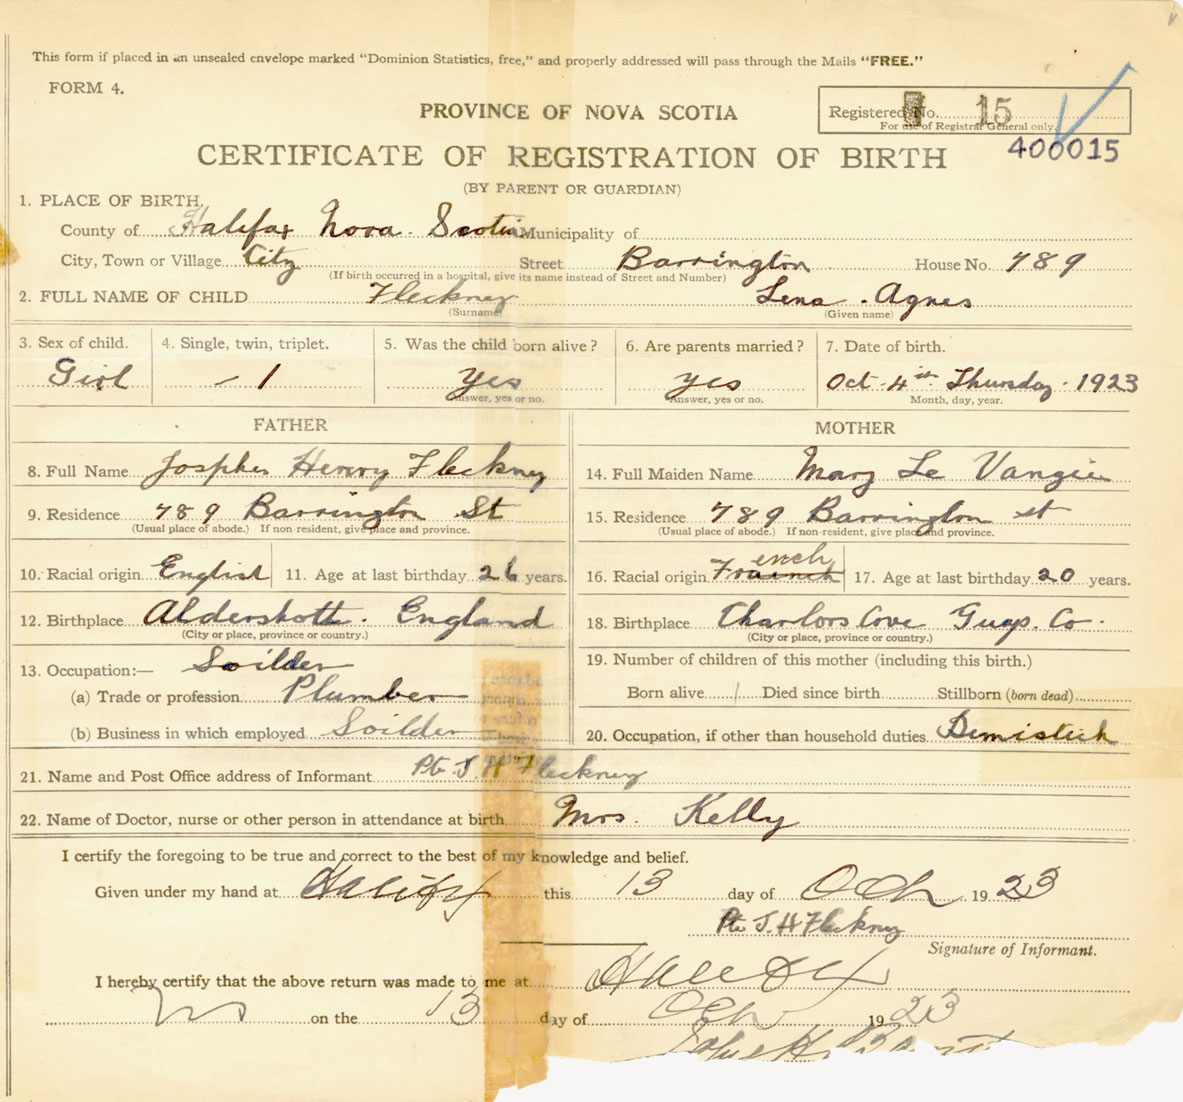 This form if placed in an unsealed envelope marked "Dominion Statistics, free," and properly addressed will pass through the Mails "FREE."
FORM 4.
PROVINCE OF NOVA SCOTIA
Registered No. 15
For use of Registrar General only.
400015
CERTIFICATE OF REGISTRATION OF BIRTH
(BY PARENT OR GUARDIAN)
1. PLACE OF BIRTH.
County of Halifax Nova Scotia Municipality of
City, Town or Village City Street Barrington House No. 789
(If birth occurred in a hospital, give its name instead of Street and Number)
2. FULL NAME OF CHILD Fleckney Lena Agnes
(Surname) (Given name)
3. Sex of child. 4. Single, twin, triplet. 5. Was the child born alive? 6. Are parents married? 7. Date of birth.
Girl 1 Yes Yes Oct 4th Thursday 1923
Answer, yes or no. Answer, yes or no. Month, day, year.
FATHER MOTHER
8. Full Name Josphes Henry Fleckney 14. Full Maiden Name Mary Le Vangie
9. Residence 789 Barrington St 15. Residence 789 Barrington st
(Usual place of abode.) If non resident, give place and province. (Usual place of abode.) If non-resident, give place and province.
10. Racial origin English 11. Age at last birthday 26 years. 16. Racial origin French 17. Age at last birthday 20 years.
12. Birthplace Aldershott. England 18. Birthplace Charlors Cove Guys. Co.
(City or place, province or country.) (City or place, province or country.)
13. Occupation:— Soilder 19. Number of children of this mother (including this birth.)
(a) Trade or profession Plumber Born alive 1 Died since birth Stillborn (born dead)
(b) Business in which employed Soilder 20. Occupation, if other than household duties. Dimistick
21. Name and Post Office address of Informant Pte J. H Fleckney
22. Name of Doctor, nurse or other person in attendance at birth Mrs. Kelly
I certify the foregoing to be true and correct to the best of my knowledge and belief.
Given under my hand at Halifax this 13 day of Oct 1923
Pte J. H Fleckney
Signature of Informant.
I hereby certify that the above return was made to me at Halifax
NS on the 13 day of Oct 1923